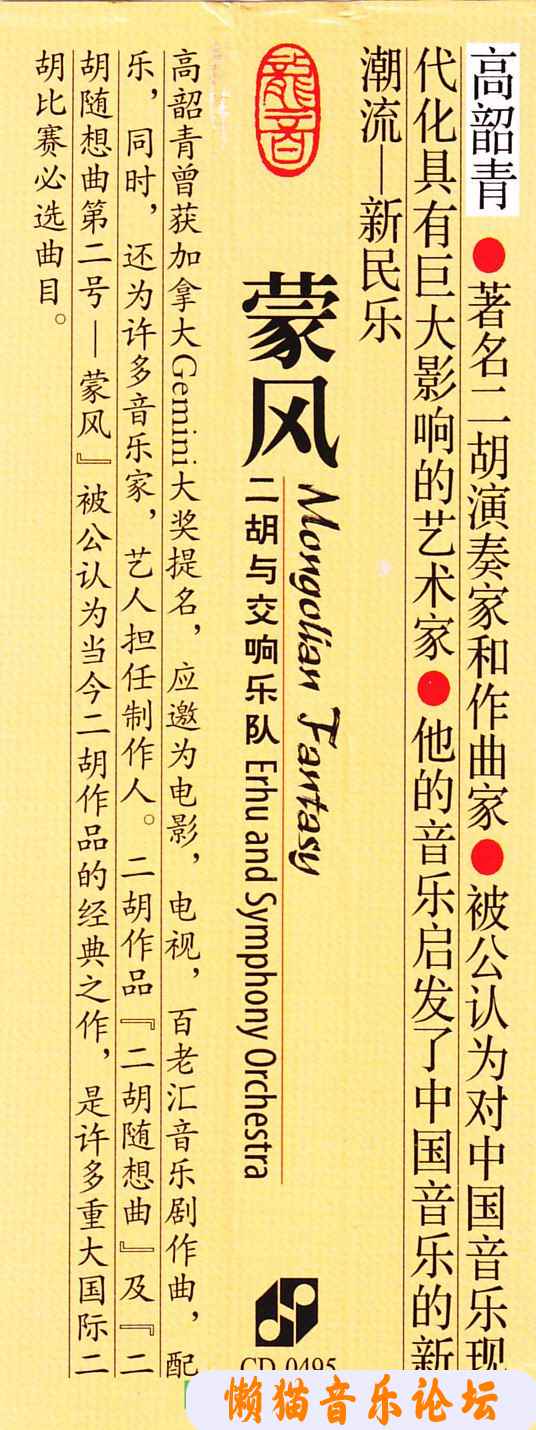 高韶青 ●著名二胡演奏家和作曲家●被公认为对中国音乐现
代化具有巨大影响的艺术家●他的音乐启发了中国音乐的新
潮流—新民乐
龍音
蒙风
Mongolian Fantasy
二胡与交响乐队 Erhu and Symphony Orchestra
CD-0495
高韶青曾获加拿大Gemimi大奖提名，应邀为电影，电视，百老汇音乐剧作曲，配
乐，同时，还为许多音乐家，艺人担任制作人。二胡作品『二胡随想曲』及『二
胡随想曲第二号—蒙风』被公认为当今二胡作品的经典之作，是许多重大国际二
胡比赛必选曲目。
懒猫音乐论坛